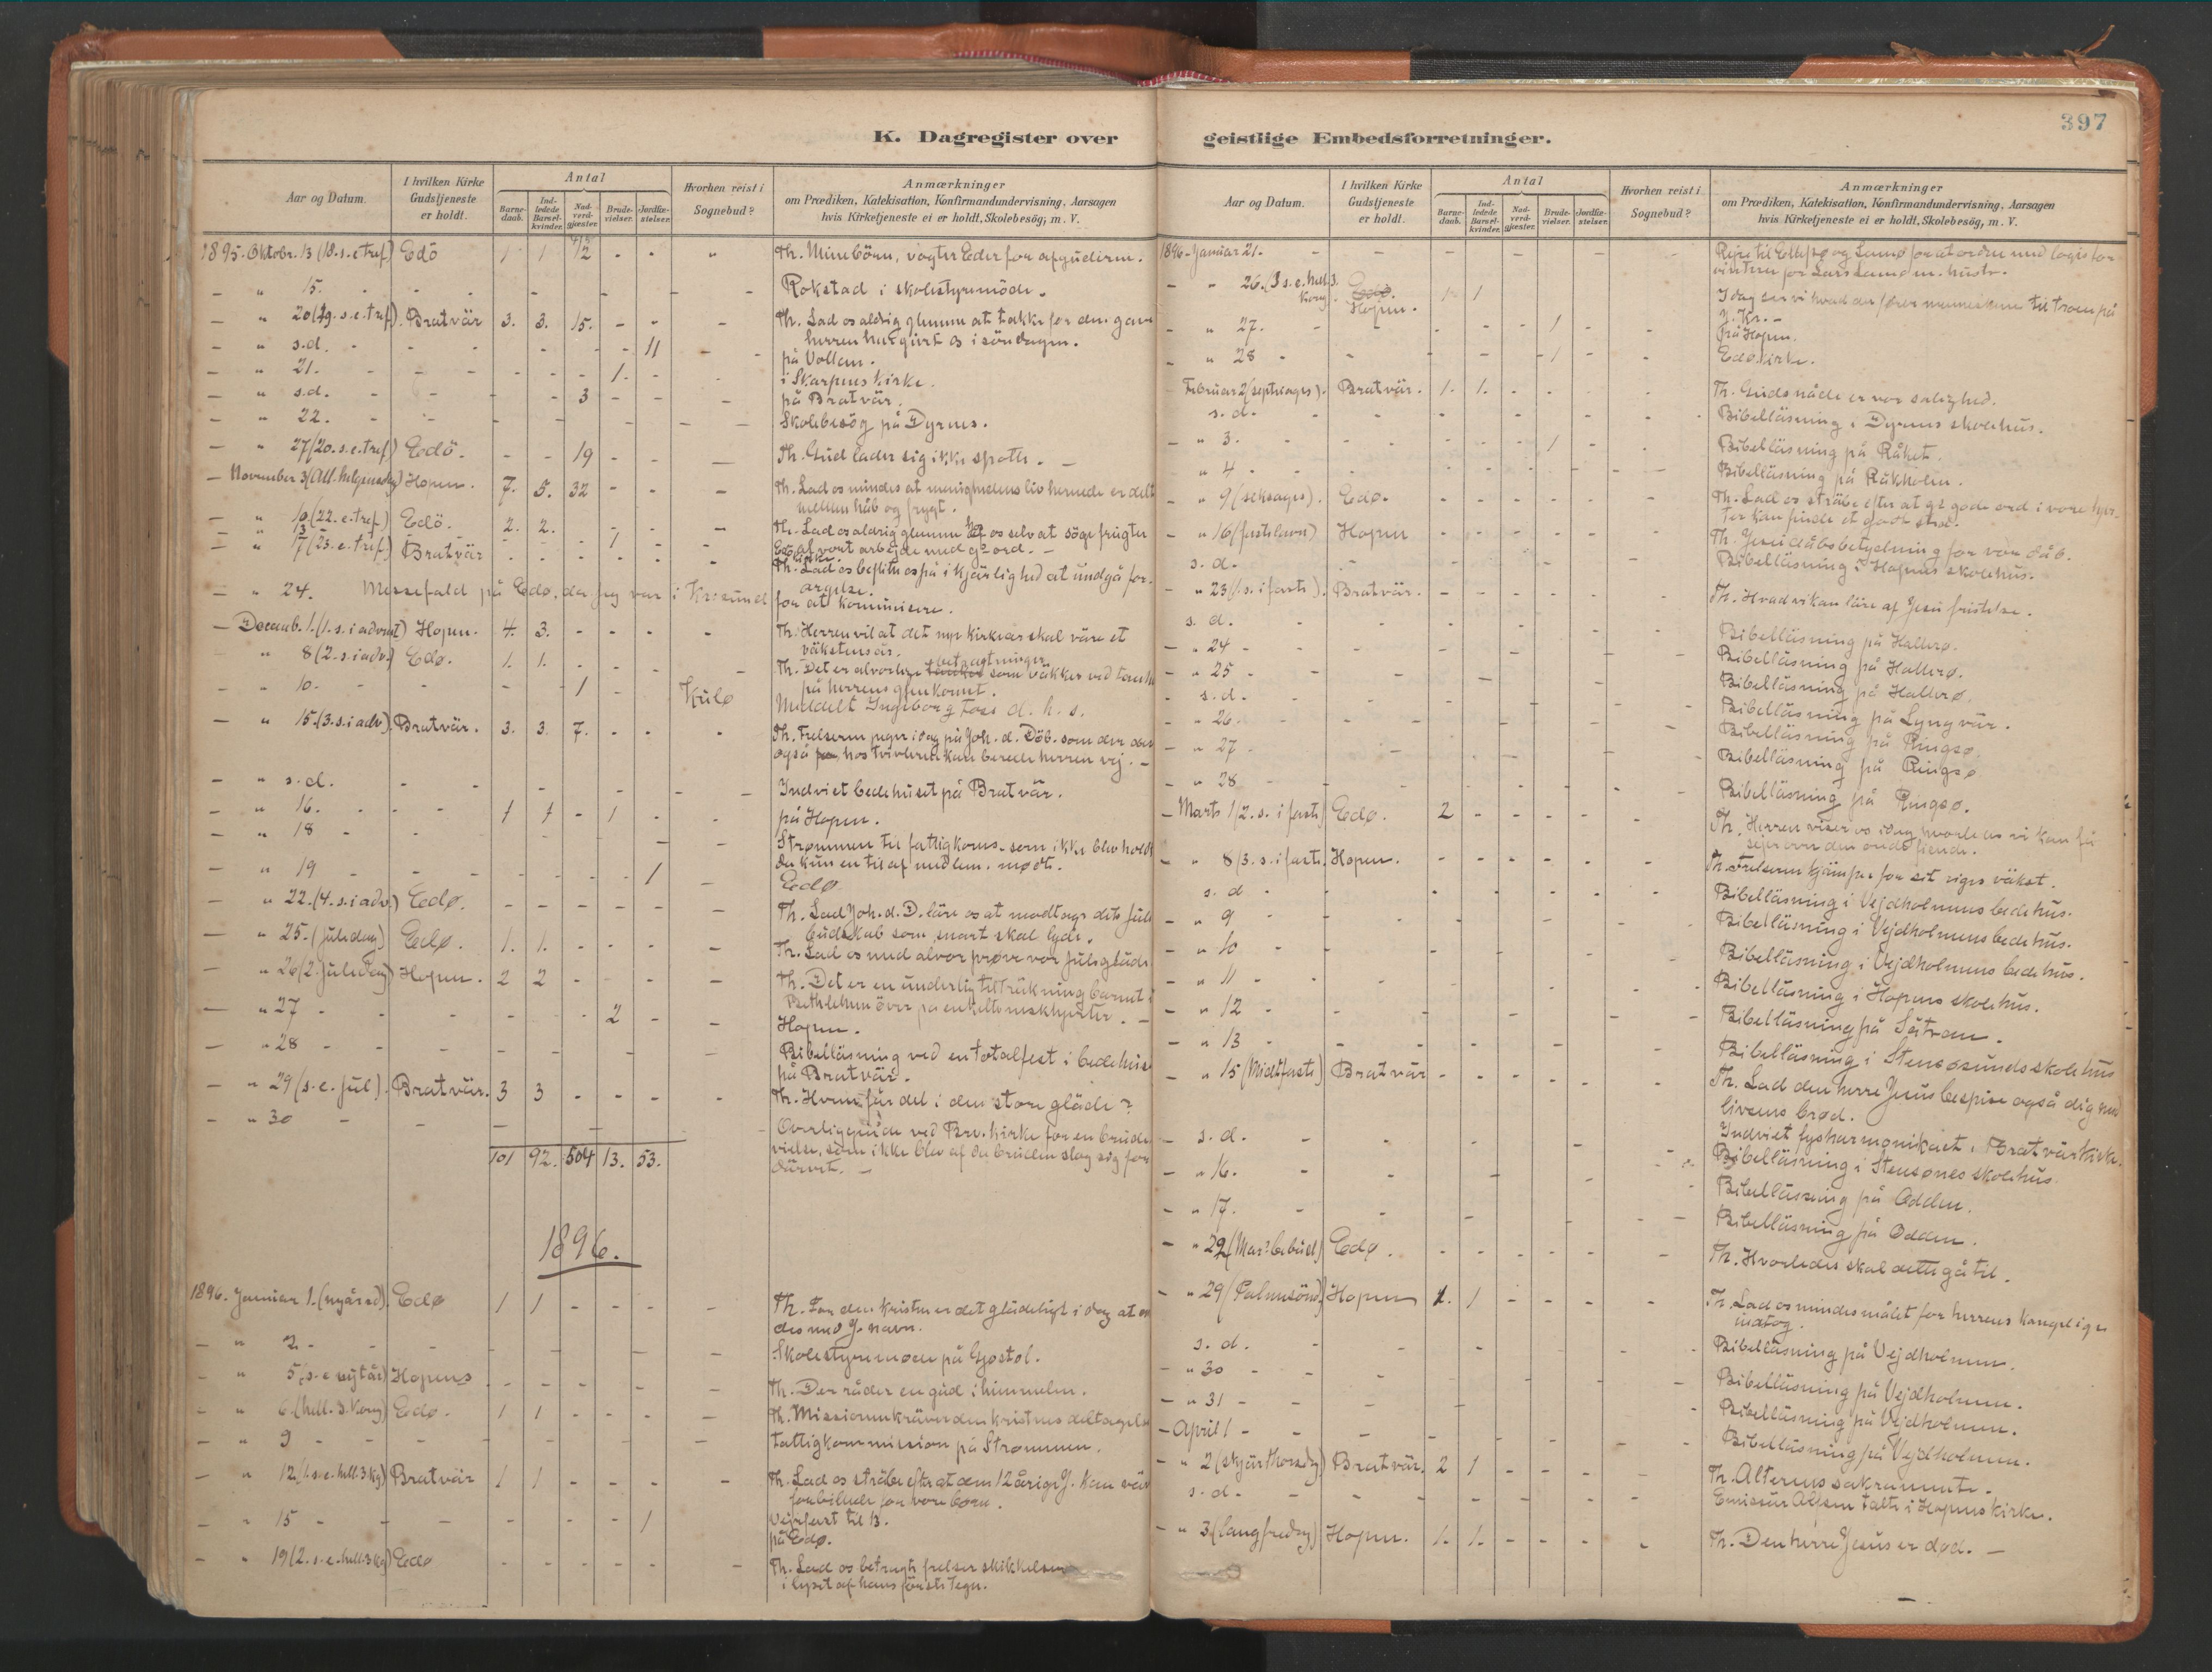 K. Dagregister over
Aar og Datum.
I hvilken Kirke Gudstjeneste er holdt.
Antal
Barnedaab.
Indledede Barselkvinder.
Nadverdgjæster.
Brudevielser.
Jordfæstelser.
Hvorhen reist i Sognebud?
Anmærkninger
om Prædiken, Katekisation, Konfirmandundervisning, Aarsagen
hvis Kirketjeneste ei er holdt, Skolebesög, m. V.
1895. Oktobr. 13 (18. s. e. tref.) Edö 1 1 - - " Th. Mine börn, vogter Eder for afguderne.
— " 15. - - - Rokstad i skolestyremöde.
— " 20 (19. s. e. tref.) Bratvär 3. 3. 15. - - - Th. Lad os aldrig glemme at takke for den gave
herren har givet os i söndagen.
— " s.d. - - - 11 - på Vollen.
— " 21. - - - 1. - i Skarpnes kirke.
— " s.d. - - 3 - - - på Bratvär.
— " 22. - - - Skolebesög på Dyrnes.
— " 27 (20. s. e. tref) Edö. - - 19 - - — Th. Gud lader sig ikke spotte. —
— November 3 (All. helgensdag) Hopen. 7. 5. 32 - - - Th. Lad os mindes at menighedens liv hernede er delt
mellem håb og frygt.
— " 10 (22. e. tref.) Edö. 2. 2. - - - Th. Lad os aldrig glemme os selv at söge frugter
af vort arbejde med gs ord. —
" 13 - - 1 - Edö kirke.
— " 17 (23. e. tref.) Bratvär - - - - - Th. Lad os beflitte os på i kjärlighed at undgå for-
argelse.
— " 24. Messefald på Edö, da jeg var i Kr.sund for at kommunisere.
— Decemb. 1. (1. s. i advent) Hopen. 4. 3. - - - - Th. Herren vil at det nye kirkeår skal väre et
väkstens år.
" 8 (2. s. i adv.) Edø. 1. 1. - - - - Th. Det er alvorlige betragtninger som väkkes ved tanken
på herrens gjenkomst.
- " 10. - - - 1 - Kulø Meddelt Ingeborg d. h. s.
— " 15. (3. s. i adv.) Bratvär. 3. 3. 7. - - - Th. Frelseren peger idag på Joh. d. Döb. som den der
også hos tvivleren kan berede herren vej. —
— " s.d. - - - Indviet bedehuset på Bratvär.
— " 16. - - 1 1 - 1 - - på Hopen.
— " 18 - - - Strømmen til fattigkoms. som ikke blev holdt
da kun en til af medlem. mødt.
— " 19 - - - 1 - Edø
— " 22. (4. s. i adv.) Edø. - - - - - - Th. Lad Joh. d. D. läre os at modtage det jule
budskab som snart skal lyde.
— " 25. (juledag) Edø. 1. 1. - - - - Th. Lad os med alvor prøve vor juleglæde
— " 26 (2. juledag) Hopen. 2 2 - - - - Th. Det er en underlig tiltrækning barnet i
Bethlehem över på enkelte
— " 27 - - - 2 - - Hopen.
— " 28 - - - Bibelläsning ved en totalfest i bedehuset
på Bratvär.
— " 29 (s. e. jul). Bratvär. 3 3 - - - - Th. Hvem får del i den store gläde?
- " 30 - - - Overliggende ved Brv. kirke for en brude-
vielse, som ikke blev af da bruden slog sig for
101 92. 504 13. 53.
1896.
1896. Januar 1. (nyårsd). Edø 1 1 - - - - Th. For den kristne er det glädeligt i dag at
J. navn.
— " 2 - - - Skolestyremøde på Gjostöl.
— " 5 (s. e. nytår) Hopens - - - Th. Der råder en gud i himmelen.
— " 6. (hell. 3. kong) Edø. 1 1 - - - — Th. Missionen kräver den kristnes deltagelse
— " 9 - - - Fattigkommission på Strømmen.
— " 12 (1. s. e. hell. 3 kg) Bratvär 1 1 - - - - Th. Lad os sträbe efter at den 12 årige J. kan väre
forbillede for vore börn.
Vejrfast til 13.
— " 15 - - - 1 på Edø.
— " 19 (2. s. e. hell. 3 kg) Edø - - - Th. Lad os betragte frelser skikkelsen
i lyset af hans første tegn.
397
geistlige Embedsforretninger.
Aar og Datum.
I hvilken Kirke Gudstjeneste er holdt.
Antal
Barnedaab.
Indledede Barselkvinder.
Nadverdgjæster.
Brudevielser.
Jordfæstelser.
Hvorhen reist i Sognebud?
Anmærkninger
om Prædiken, Katekisation, Konfirmandundervisning, Aarsagen
hvis Kirketjeneste ei er holdt, Skolebesög, m. V.
1896 - Januar 21. - - - Rejse til og for at ordne med logis for
vinteren for Lars m. hustr.
— " 26. (3 s. e. hell. 3. kong. Edø. Hopen. 1 1 - - - I dag ser vi hvad der fører menneskene til troen på
J. Kr. -
— " 27. - - - 1 - - på Hopen.
— " 28 - - - 1 - - Edø kirke.
Februar 2 (septuages). Bratvär. 1. 1. - - - - Th. Guds nåde er vor salighed.
s. d. - - - Bibelläsning i Dyrnes skolehus.
— " 3. - - - 1 - Bibelläsning på Råket.
" 4 - - - Bibelläsning på Råkholm.
— " 9 (seksages). Edø. - - - Th. Lad os sträbe efter at gs gode ord i vore hjer-
ter kan finde et godt sted.
— " 16 (fastelavn) Hopen - - - Th. Jesu dåbs betydning for vor dåb.
s. d. - - - Bibelläsning i Hopens skolehus.
— " 23 (1. s. i faste). Bratvär. - - - Th. Hvad vi kan läre af Jesu fristelse.
s. d. - - - Bibelläsning på Hallerø.
— " 24 - - - Bibelläsning på Hallerø.
— " 25 - - - Bibelläsning på Hallerø.
s. d. - - - Bibelläsning på Lyngvär.
— " 26. - - - Bibelläsning på Ringsø.
— " 27 - - - Bibelläsning på Ringsø
— " 28 - - - Bibelläsning på Ringsø.
— Marts 1 (2. s. i faste) Edø. 2 - - - - - Th. Herren viser os idag hvorledes vi kan få
sejer over den onde fiende.
— " 8 (3. s. i faste. Hopen. - - - Th. Frelseren kjämper for sit riges väkst.
s. d - - - Bibelläsning i Vejdholmens bedehus.
— " 9 - - - Bibelläsning i Vejdholmens bedehus.
— " 10 - - - Bibelläsning i Vejdholmens bedehus.
— " 11 - - - Bibelläsning i Hopens skolehus.
— " 12 - - - Bibelläsning på Sätran.
— " 13 - - - Bibelläsning i Stensøsunds skolehus
— " 15 (Midtfaste) Bratvär - - - Th. Lad den herre Jesus bespise også dig med
livsens brød.
— s. d. - - - Indviet fysharmonikaet i Bratvär kirke.
— " 16. - - - Bibelläsning i Stensønes skolehus.
— " 17. - - - Bibelläsning på Odden.
Bibelläsning på Odden.
— " 22 (Mar. bebud.) Edø. - - - Th. Hvorledes skal dette gå til.
— " 29 (Palmesönd.) Hopen 1. 1 - - - - Th. Lad os mindes målet for herrens kongelige
indtog.
s. d. - - - Bibelläsning på Vejdholmen.
— " 30 - - - Bibelläsning på Vejdholmen.
— " 31 - - - Bibelläsning på Vejdholmen.
— April 1 - - - Bibelläsning på Vejdholmen.
— " 2 (skjärthorsdag) Bratvär. 2 1 - - - - Th. Alterens sakramente.
s. d. - - - Emissär Olsen talte i Hopens kirke.
— " 3. (langfredag) Hopen. 1. 1. - - - - Th. Den herre Jesus er död. —